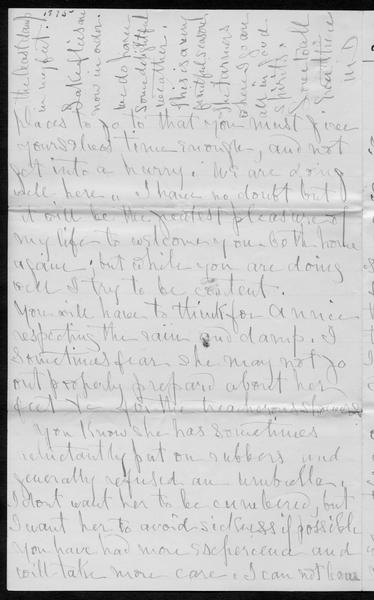 places to go to that you must give
yourselves time enough, and not
get into a hurry. We are doing
well here. I have no doubt but
it will be the greatest pleasure of
my life to welcome you both home
again; but while you are doing
well I try to be content.
You will have to think for Annie
respecting the rain and damp. I
sometimes fear she may not go
out properly prepared about her
feet &c for the treacherous showers
You know she has sometimes
reluctantly put on rubbers and
generally refused an umbrella.
I dont want her to be cumbered, but
I want her to avoid sickness if possible
You have had more experience and
will take more care. I can not have
the least damp
in my feet!
1875
Dakeflies are
now in order.
We do have
some delightful
weather.
This is a very
fruitful season
The farmers
where I go are
all in good
spirits.